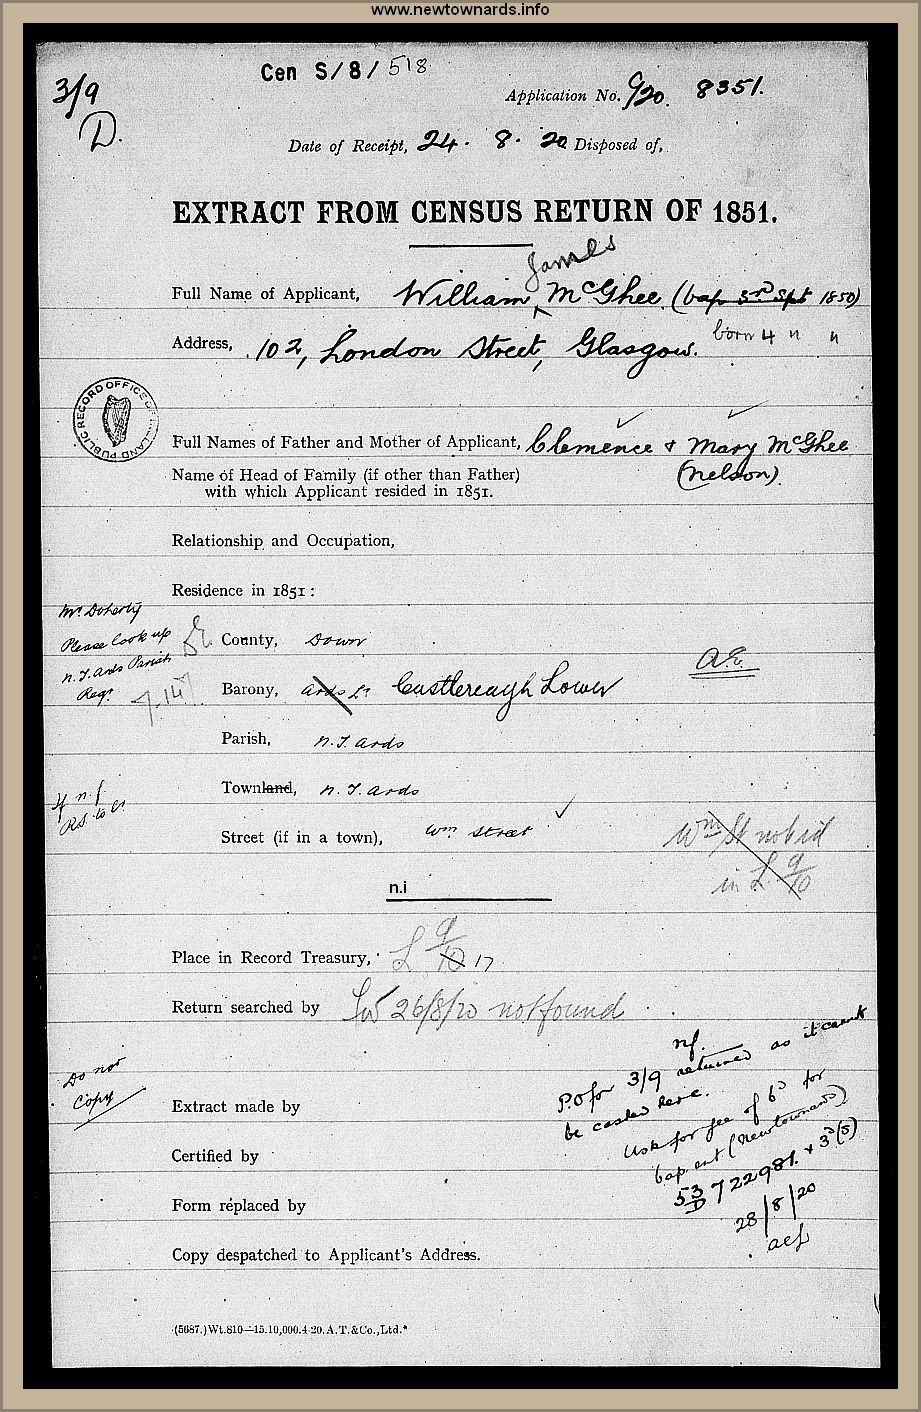 www.newtownards.info
Cen S/8/518
3/9
D.
Application No. C/20. 8351.
Date of Receipt, 24. 8. 20 Disposed of,
EXTRACT FROM CENSUS RETURN OF 1851.
James
Full Name of Applicant, William ^ McGhee (bap 3rd Spt 1850)
born 4 " "
Address, 102, London Street, Glasgow.
PUBLIC RECORD OFFICE OF IRELAND
Full Names of Father and Mother of Applicant, Clemence & Mary McGhee
(Nelson)
Name of Head of Family (if other than Father)
with which Applicant resided in 1851.
Relationship and Occupation,
Residence in 1851:
Mr. Doherty
Please look up
N.T.ards Parish
Regr
7.147
County, Down
A.E.
Barony, Ards Lr Castlereagh Lower
Parish, N.T. ards
Townland, N.T. ards
If n.f.
Street (if in a town), Wm Street
Wm St not id
in L 9/10
n.i
Place in Record Treasury, L 9/10 17
Return searched by 26/8/20 not found
n.f.
P.O for 3/9 returned as it cannot
be cashed here.
Do not
Copy
Ask for fee of 6d for
bap. ent (Newtownards)
Extract made by
53/D 722981. & 3d(S)
Certified by
28/8/20
Form replaced by
Copy despatched to Applicant's Address.
(5687.)Wt.810—15.10,000.4-20.A.T.&Co.,Ltd.